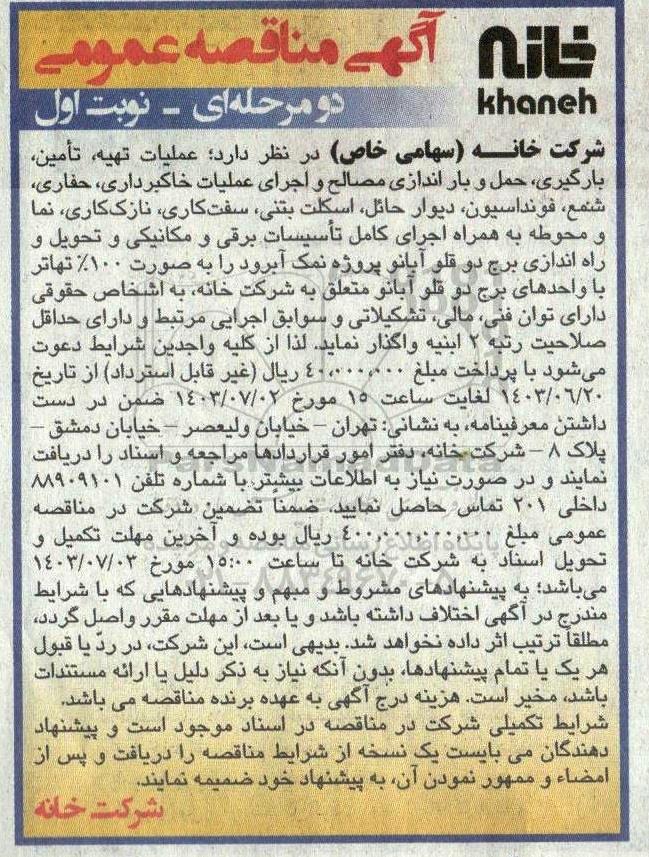 آگهی مناقصه عمومی
خانه
khaneh
دو مرحله‌ای - نوبت اول
شرکت خانــه (سهامی خاص) در نظر دارد؛ عملیات تهیه، تأمین،
بارگیری، حمل و بار اندازی مصالح و اجرای عملیات خاکبرداری، حفاری،
شمع، فونداسیون، دیوار حائل، اسکلت بتنی، سفت‌کاری، نازک‌کاری، نما
و محوطه به همراه اجرای کامل تأسیسات برقی و مکانیکی و تحویل و
راه اندازی برج دو قلو آبانو پروژه نمک آبرود را به صورت ۱۰۰٪ تهاتر
با واحدهای برج دو قلو آبانو متعلق به شرکت خانه، به اشخاص حقوقی
دارای توان فنی، مالی، تشکیلاتی و سوابق اجرایی مرتبط و دارای حداقل
صلاحیت رتبه ۲ ابنیه واگذار نماید. لذا از کلیه واجدین شرایط دعوت
می‌شود با پرداخت مبلغ ۴۰,۰۰۰,۰۰۰ ریال (غیر قابل استرداد) از تاریخ
۱۴۰۳/۰۶/۲۰ لغایت ساعت ۱۵ مورخ ۱۴۰۳/۰۷/۰۲ ضمن در دست
داشتن معرفینامه، به نشانی: تهران – خیابان ولیعصر – خیابان دمشق –
پلاک ۸ – شرکت خانه، دفتر امور قراردادها مراجعه و اسناد را دریافت
نمایند و در صورت نیاز به اطلاعات بیشتر با شماره تلفن ۸۸۹۰۹۱۰۱
داخلی ۲۰۱ تماس حاصل نمایید. ضمناً تضمین شرکت در مناقصه
عمومی مبلغ ۴۰۰,۰۰۰,۰۰۰,۰۰۰ ریال بوده و آخرین مهلت تکمیل و
تحویل اسناد به شرکت خانه تا ساعت ۱۵:۰۰ مورخ ۱۴۰۳/۰۷/۰۳
می‌باشد؛ به پیشنهادهای مشروط و مبهم و پیشنهادهایی که با شرایط
مندرج در آگهی اختلاف داشته باشد و یا بعد از مهلت مقرر واصل گردد،
مطلقاً ترتیب اثر داده نخواهد شد. بدیهی است، این شرکت، در ردّ یا قبول
هر یک یا تمام پیشنهادها، بدون آنکه نیاز به ذکر دلیل یا ارائه مستندات
باشد، مخیر است. هزینه درج آگهی به عهده برنده مناقصه می باشد.
شرایط تکمیلی شرکت در مناقصه در اسناد موجود است و پیشنهاد
دهندگان می بایست یک نسخه از شرایط مناقصه را دریافت و پس از
امضاء و ممهور نمودن آن، به پیشنهاد خود ضمیمه نمایند.
شرکت خانه